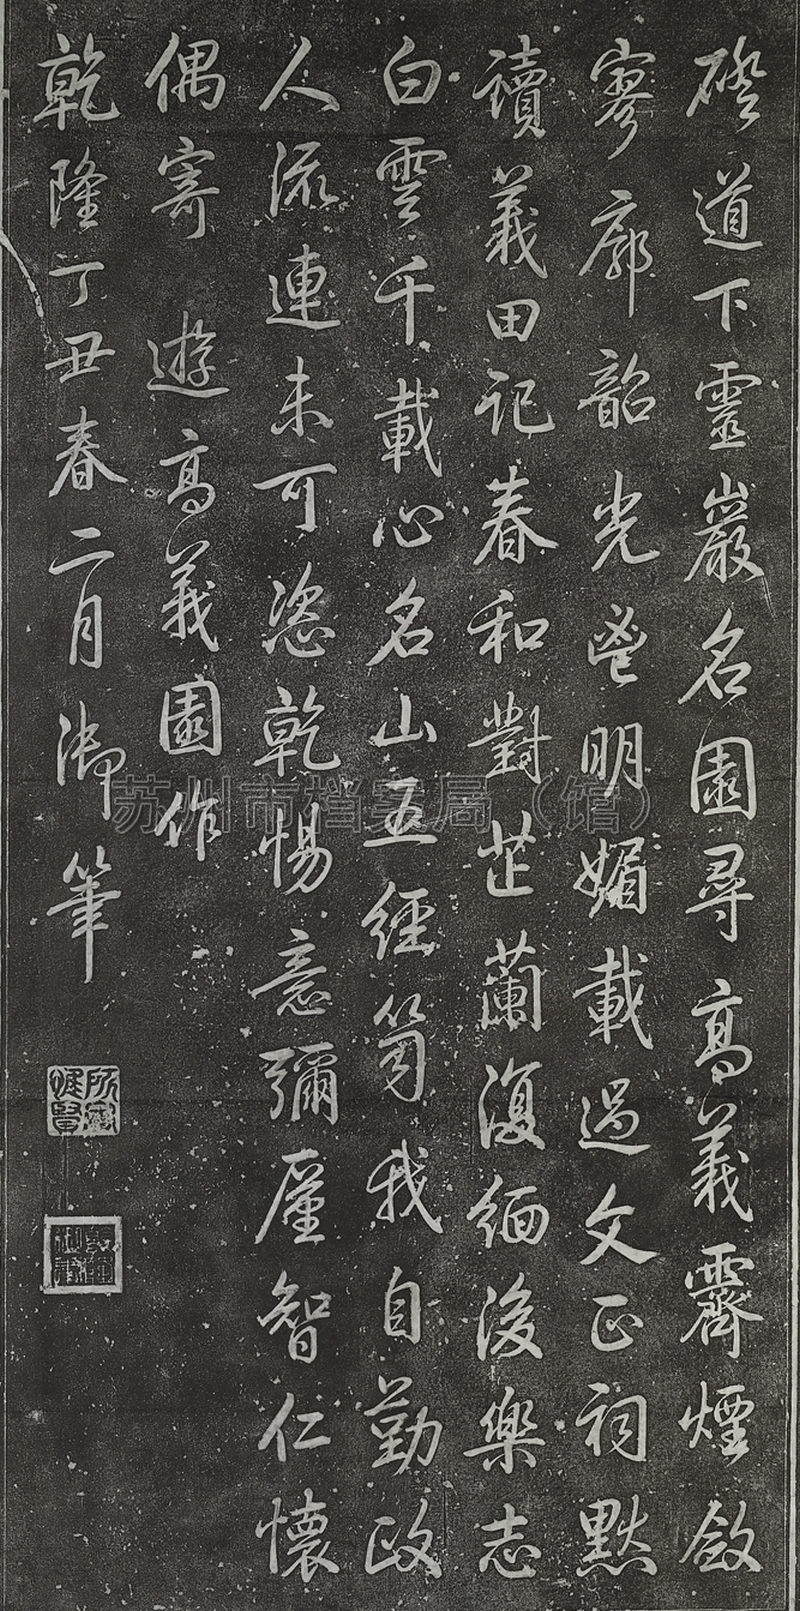 磴道下靈巖名園尋高義霽煙斂
寥廓韶光鬯明媚載過文正祠默
讀義田記春和對芷蘭復緬後樂志
白雲千載心名山五經笥我自勤政
人流連未可恣乾惕意彌厪智仁懷
偶寄 遊高義園作
乾隆丁丑春二月御筆
所寶惟賢
苏州市档案局（馆）